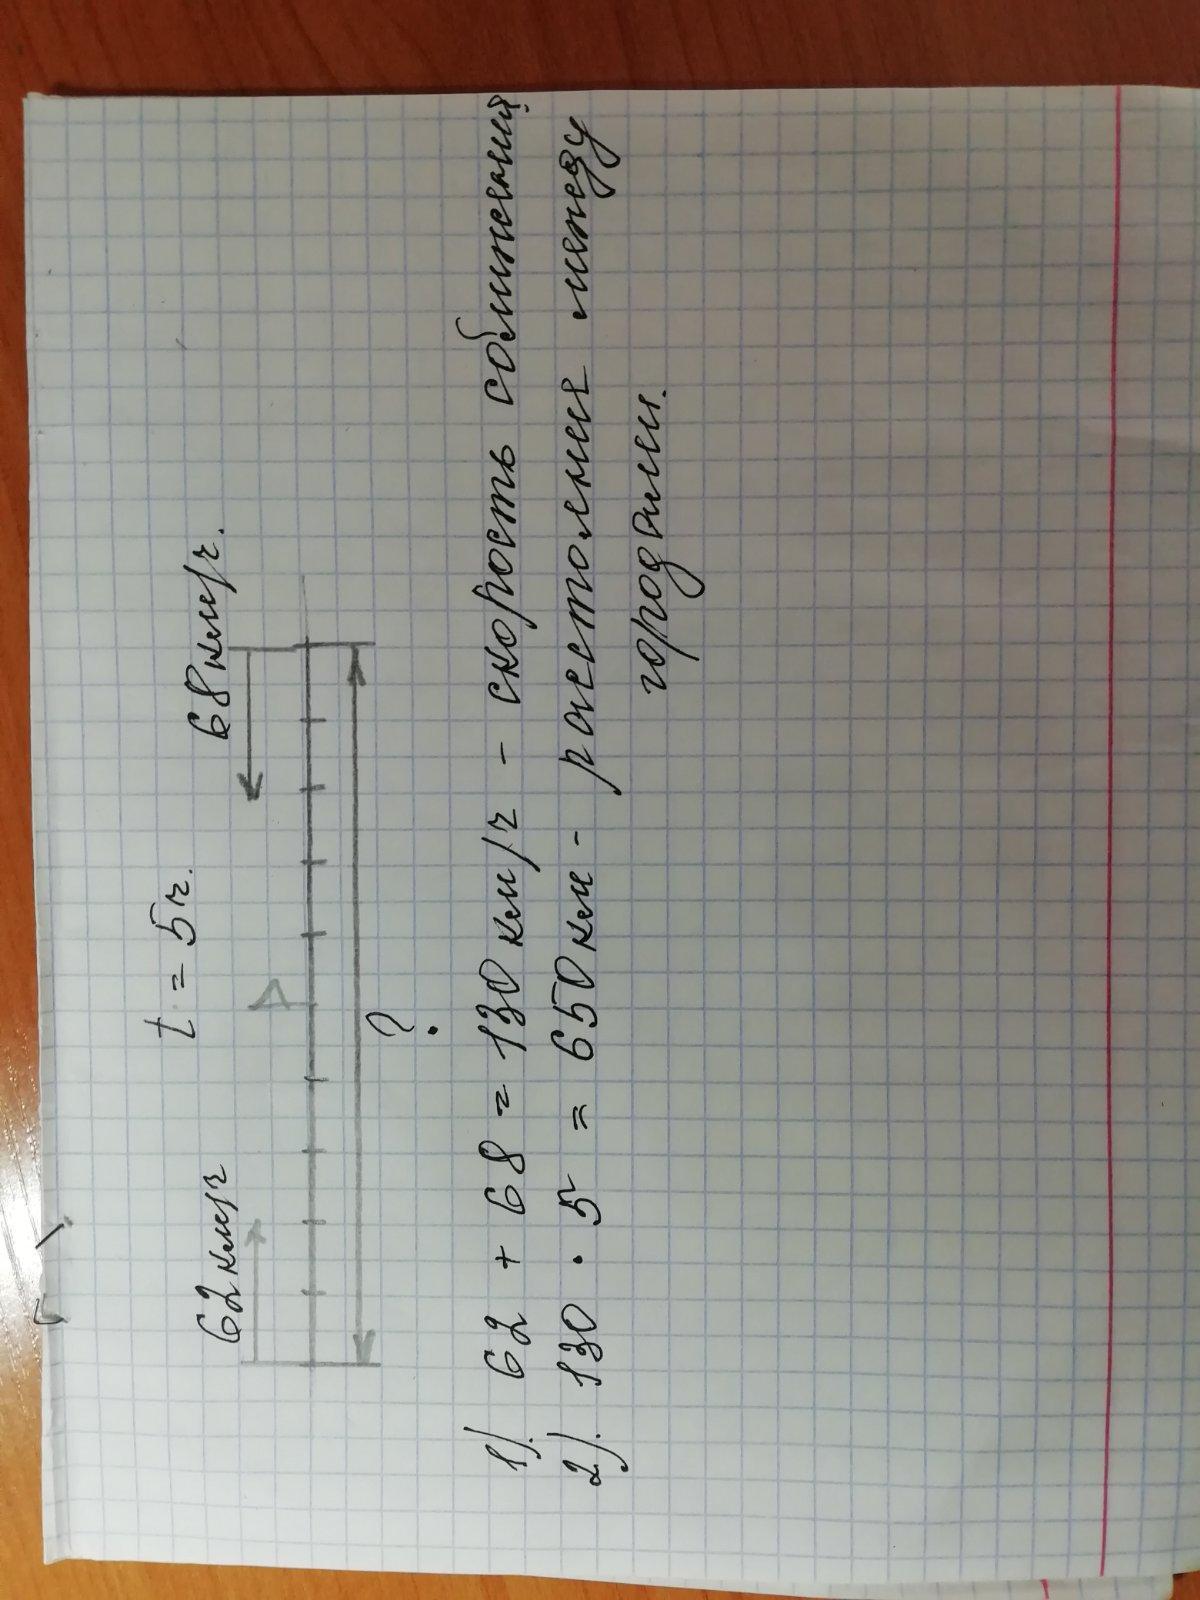 t = 5ч.
62км/ч 68км/ч.
?
1). 62 + 68 = 130км/ч - скорость сближения
2). 130 · 5 = 650км - расстояние между
городами.